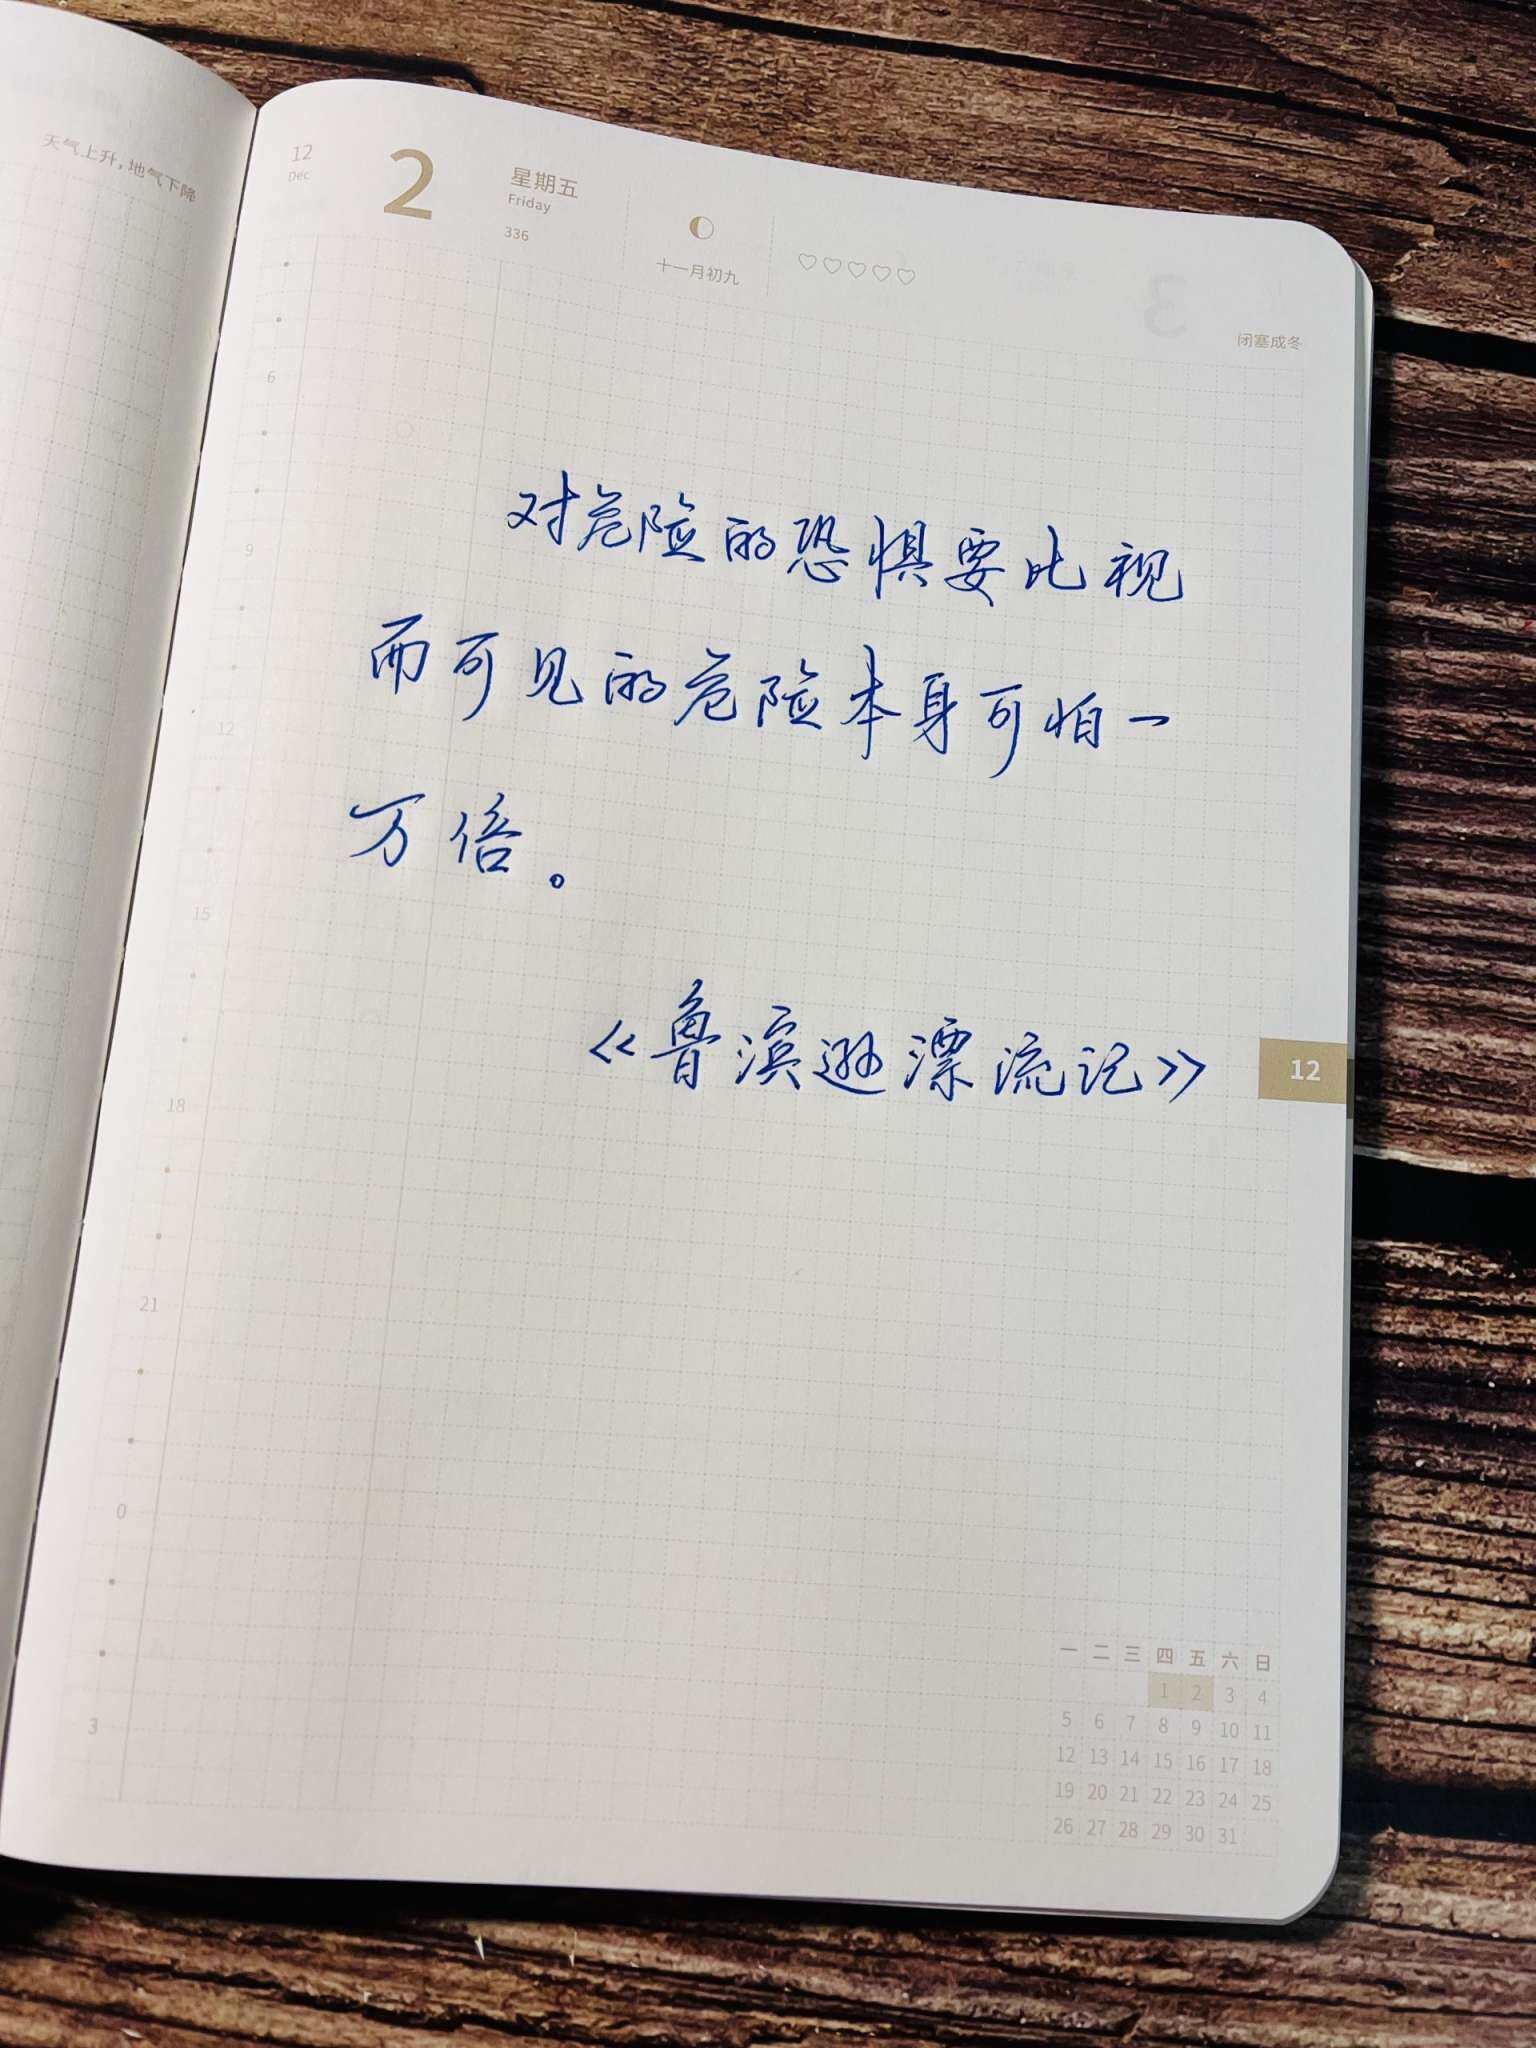 天气上升，地气下降
12
Dec
2
星期五
Friday
336
十一月初九
闭塞成冬
3
6
9
12
15
18
21
0
3
对危险的恐惧要比视
而可见的危险本身可怕一
万倍。
《鲁滨逊漂流记》
12
一 二 三 四 五 六 日
1 2 3 4
5 6 7 8 9 10 11
12 13 14 15 16 17 18
19 20 21 22 23 24 25
26 27 28 29 30 31